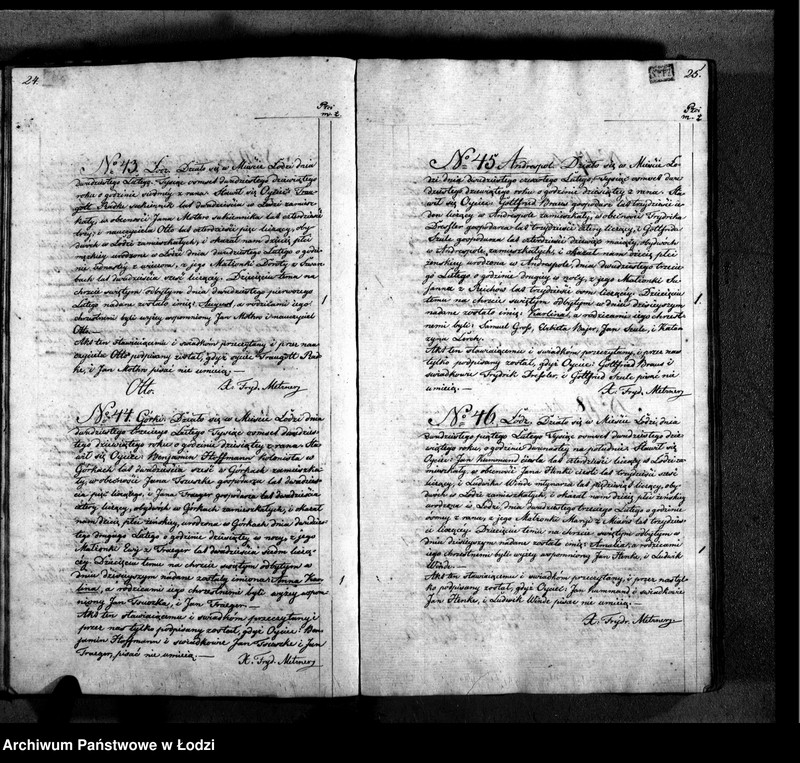 24.
Płci
m. ż.
No 43. Łódź. Działo się w Mieście Łodzi dnia
dwudziestego Lutego Tysiąc osmset dwudziestego dziewiątego
roku o godzinie siódmey z rana. Stawił się Oyciec Trau-
gott sukiennik lat dwadzieścia w Łodzi zamiesz-
kały, w obecności Jana sukiennika lat czterdzieści
i nauczyciela Otto lat czterdzieści pięć liczący, oby-
dwóch w Łodzi zamieszkałych, i okazał nam dziecię płci
męzkiey urodzone w Łodzi dnia dwudziestego Lutego o godzi-
nie z wieczora, z jego Małżonki Doroty z
lat dwadzieścia sześć liczącey. Dziecięciu temu na
chrzcie świętym odbytym dniu dwudziestego pierwszego
Lutego nadane zostało imię August, a rodzicami jego
chrzestnemi byli wyżey wspomniony Jan i nauczyciel
Otto.
Akt ten stawiającemu i świadkom przeczytany i przez nau-
czyciela Otto podpisany został, gdyż oyciec Traugott
i Jan pisać nie umieią.—
Otto. X. Fryd. Metzner
No 44. Górki. Działo się w Mieście Łodzi dnia
dwudziestego trzeciego Lutego Tysiąc osmset dwudzies-
tego dziewiątego roku o godzinie dziewiątey z rana. Sta-
wił się Oyciec Benjamin Hoffmann kolonista w
Górkach lat dwadzieścia sześć w Górkach zamieszka-
ły, w obecności Jana gospodarza lat dwadzieś-
cia pięć liczącego, i Jana Traeger gospodarza lat dwadzieścia
cztery liczący, obydwóch w Górkach zamieszkałych, i okazał
nam dziecię płci żeńskiey, urodzone w Górkach dnia dwudzies-
tego drugiego Lutego o godzinie dziewiątey w nocy, z jego
Małżonki Ewy z Traeger lat dwadzieścia siedem liczą-
cey. Dziecięciu temu na chrzcie świętym odbytym w
dniu dzisieyszym nadane zostały imiona Anna Karo-
lina, a rodzicami jego chrzestnemi byli wyżey wspom-
niony Jan i Jan Traeger.—
Akt ten stawiaiącemu i świadkom przeczytany i
przez nas tylko podpisany został, gdyż Oyciec Ben-
jamin Hoffmann i świadkowie Jan i Jan
Traeger, pisać nie umieią.—
X. Fryd. Metzner
1
25.
Płci
m. ż.
No 45. Andrespol. Działo się w Mieście Ło-
dzi dnia dwudziestego czwartego Lutego Tysiąc osmset dwu-
dziestego dziewiątego roku o godzinie dziewiątey z rana. Sta-
wił się Oyciec Gottfryd Braus gospodarz lat trzydzieści je-
den liczący w Andrespolu zamieszkały, w obecności Frydrika
Dresler gospodarza lat trzydzieści cztery liczący, i Gottfryda
Szule gospodarza lat czterdzieści dziewięć maiący, obydwóch
w Andrespolu zamieszkałych, i okazał nam dziecię płci
żeńskiey, urodzone w Andrespolu, dnia dwudziestego trzecie-
go Lutego o godzinie drugiey w nocy, z jego Małżonki Zu-
zanna z lat trzydzieści ośm liczącey. Dziecięciu
temu na chrzcie świętym odbytym w dniu dzisieyszym
nadane zostało imię Karlina, a rodzicami iego chrzest-
nemi byli: Samuel Gross, Elżbieta Bajer, Jan Szule, i Kata-
rzyna Lerch.
Akt ten stawiaiącemu i świadkom przeczytany, i przez nas
tylko podpisany został, gdyż Oyciec Gottfryd Braus i
świadkowie Frydrik Dresler, i Gottfryd Szule pisać nie
umieią.—
X. Fryd. Metzner
1
No 46. Łódź. Działo się w Mieście Łodzi dnia
dwudziestego piątego Lutego Tysiąc osmset dwudziestego dzie-
wiątego roku, o godzinie dwunastey na południe. Stawił się
Oyciec Jan Hummund cieśla lat czterdzieści liczący w Łodzi za-
mieszkały, w obecności Jana Henke cieśli lat trzydzieści sześć
liczący, i Ludwika Winde młynarza lat pięćdziesiąt liczący, oby-
dwóch w Łodzi zamieszkałych, i okazał nam dziecię płci żeńskiey
urodzone w Łodzi, dnia dwudziestego trzeciego Lutego o godzinie
ósmey z rana, z jego Małżonki Maryi z lat trzydzieś-
ci liczącey. Dziecięciu temu na chrzcie świętym odbytym w
dniu dzisieyszym nadane zostało imię Amelia, a rodzicami
iego chrzestnemi byli wyżey wspomniony Jan Henke, i Ludwik
Winde.—
Akt ten stawiaiącemu i świadkom przeczytany, i przez nas tyl-
ko podpisany został, gdyż Oyciec Jan Hummund i świadkowie
Jan Henke, i Ludwik Winde pisać nie umieią.—
X. Frydr. Metzner
1
Archiwum Państwowe w Łodzi